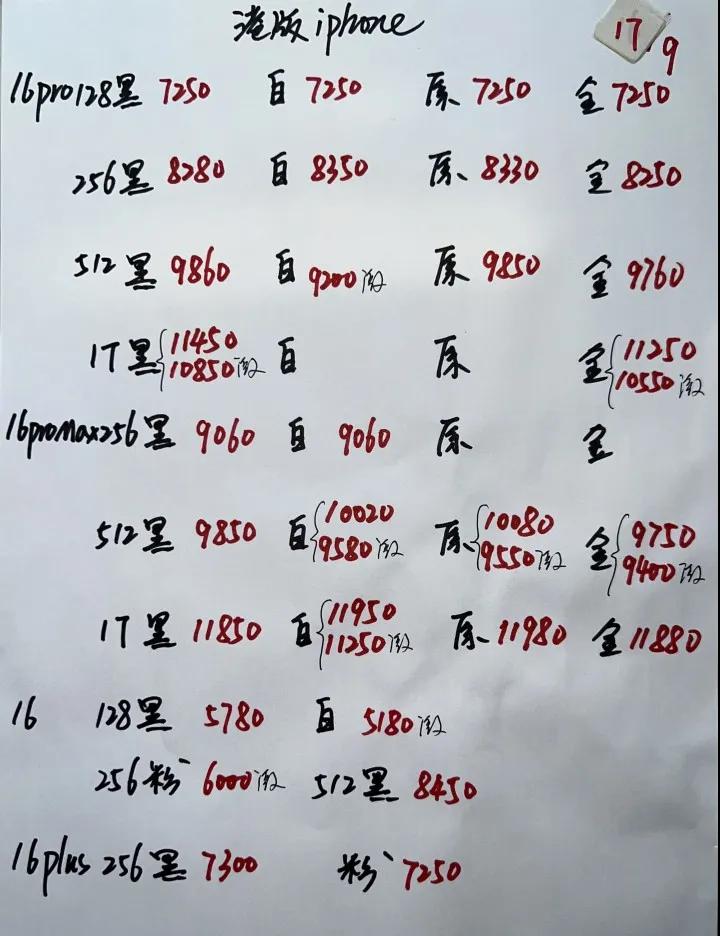 港版iphone 17.9
16pro128黑 7250 白 7250 原 7250 金 7250
256黑 8280 白 8350 原 8330 金 8250
512黑 9860 白 9200激 原 9850 金 9760
1T黑 {11450 10850激 白 原 金 {11250 10550激
16promax256黑 9060 白 9060 原 金
512黑 9850 白 {10020 9580激 原 {10080 9550激 金 {9750 9400激
1T黑 11850 白 {11950 11250激 原 11980 金 11880
16 128黑 5780 白 5180激
256粉 6000激 512黑 8450
16plus 256黑 7300 粉 7250